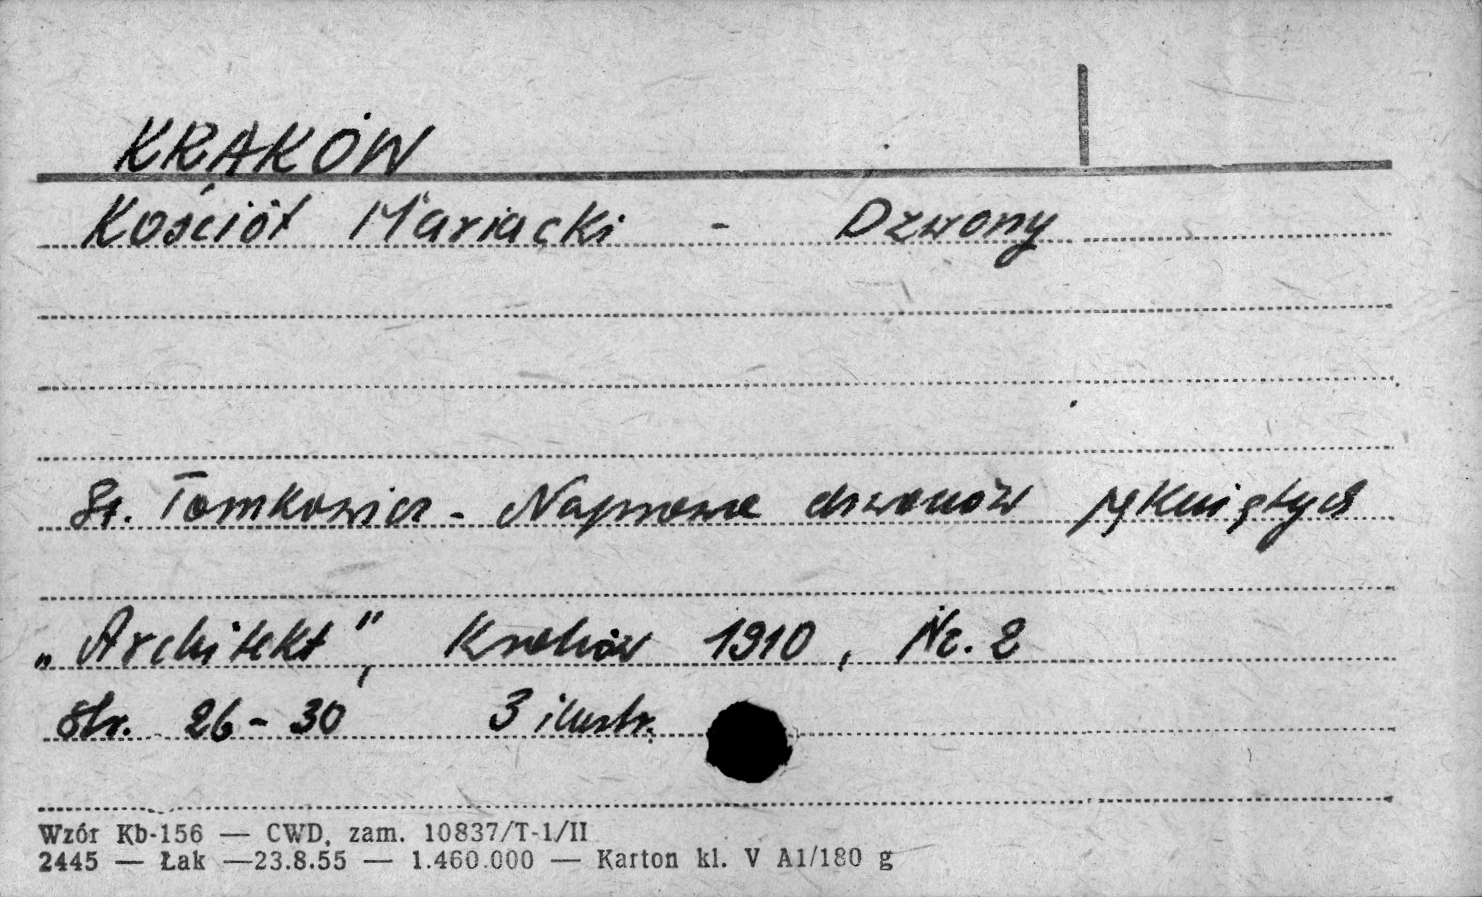 KRAKÓW
Kościół Mariacki - Dzwony
St. Tomkowicz - Naprawa dzwonów pękniętych
„Architekt", Kraków 1910, Nr. 2
str. 26-30 3 ilustr.
Wzór Kb-156 — CWD, zam. 10837/T-1/II
2445 — Łak —23.8.55 — 1.460.000 — Karton kl. V A1/180 g